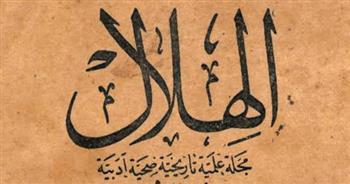 الهلال
مجلة علمية تاريخية صحية أدبية